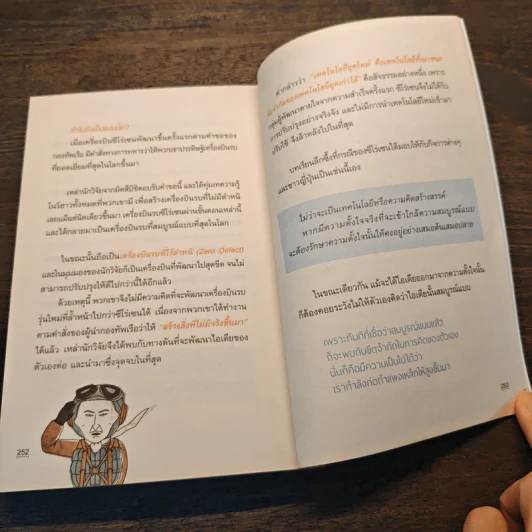 ทำไมถึงเป็นแบบนั้น?
เมื่อเครื่องบินซีโร่เซนพัฒนาขึ้นครั้งแรกตามคำขอของ
กองทัพเรือ มีคำสั่งทางการทหารว่าให้พวกเขาประดิษฐ์เครื่องบินรบ
ที่ยอดเยี่ยมที่สุดในโลกขึ้นมา
เหล่านักวิจัยจากมิตสึบิชิตอบรับคำขอนี้ และได้ทุ่มเทความรู้
โนว์ฮาวทั้งหมดที่พวกเขามี เพื่อสร้างเครื่องบินรบที่ไม่มีตำหนิ
เลยแม้แต่นิดเดียวขึ้นมา เครื่องบินรบซีโร่เซนผ่านขั้นตอนเหล่านี้
และได้กลายมาเป็นเครื่องบินรบที่สมบูรณ์แบบที่สุดในโลก
ในขณะนั้นถือเป็นเครื่องบินรบที่ไร้ตำหนิ (Zero Defect)
และในมุมมองของนักวิจัยก็เป็นเครื่องบินที่พัฒนาไปสุดขีด จนไม่
สามารถปรับปรุงให้ดีไปกว่านี้ได้อีกแล้ว
ด้วยเหตุนี้ พวกเขาจึงไม่มีความคิดที่จะพัฒนาเครื่องบิน
รุ่นใหม่ที่ล้ำหน้าไปกว่าซีโร่เซนได้ เนื่องจากพวกเขาได้ทำงาน
ตามคำสั่งของผู้นำกองทัพเรือว่าให้ "สร้างสิ่งที่ไม่มีจริงขึ้นมา"
ได้แล้ว เหล่านักวิจัยจึงได้พบกับทางตันที่จะพัฒนาไอเดียของ
ตัวเองต่อ และนำมาซึ่งจุดจบในที่สุด
252
คำกล่าวว่า "เทคโนโลยียุคใหม่ คือเทคโนโลยีที่เอาชนะ
ข้อจำกัดของเทคโนโลยียุคเก่าได้" คือสัจธรรมอย่างหนึ่ง เพราะ
กลุ่มผู้พัฒนาตายใจจากความสำเร็จครั้งแรก ซีโร่เซนจึงไม่ได้รับ
การปรับปรุงอย่างจริงจัง และไม่มีการนำเทคโนโลยีใหม่เข้ามา
ปรับใช้ จึงล้าหลังไปในที่สุด
บทเรียนลึกซึ้งที่กรณีของซีโร่เซนได้มอบให้กับกิจการต่างๆ
และชาวญี่ปุ่นเป็นเช่นนี้เอง
ไม่ว่าจะเป็นเทคโนโลยีหรือความคิดสร้างสรรค์
หากมีความตั้งใจจริงที่จะเข้าใกล้ความสมบูรณ์แบบ
จะต้องรักษาความตั้งใจนั้นให้คงอยู่อย่างเสมอต้นเสมอปลาย
ในขณะเดียวกัน แม้จะได้ไอเดียออกมาจากความตั้งใจนั้น
ก็ต้องคอยระวังไม่ให้ตัวเองคิดว่าไอเดียนั้นสมบูรณ์แบบ
เพราะทันทีที่เชื่อว่าสมบูรณ์แบบแล้ว
ก็จะพบกับขีดจำกัดในการคิดของตัวเอง
นั่นก็คือมีความเป็นไปได้ว่า
เรากำลังก่อกำแพงเหล็กให้สูงขึ้นมา
253